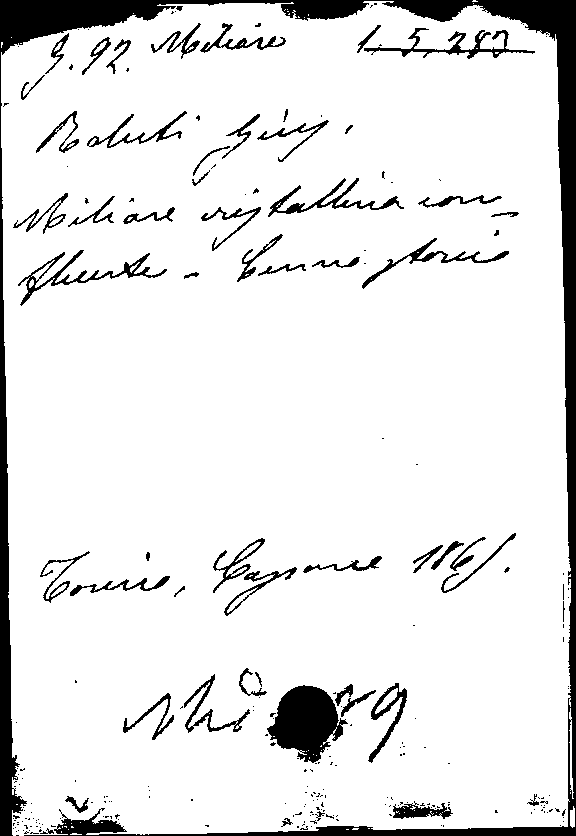 G. 92. Miliare 1, 5, 283
Boluti Gius.
Miliare cristallina con-
fluente - Cenno storico
Torino, Cassone 1861.